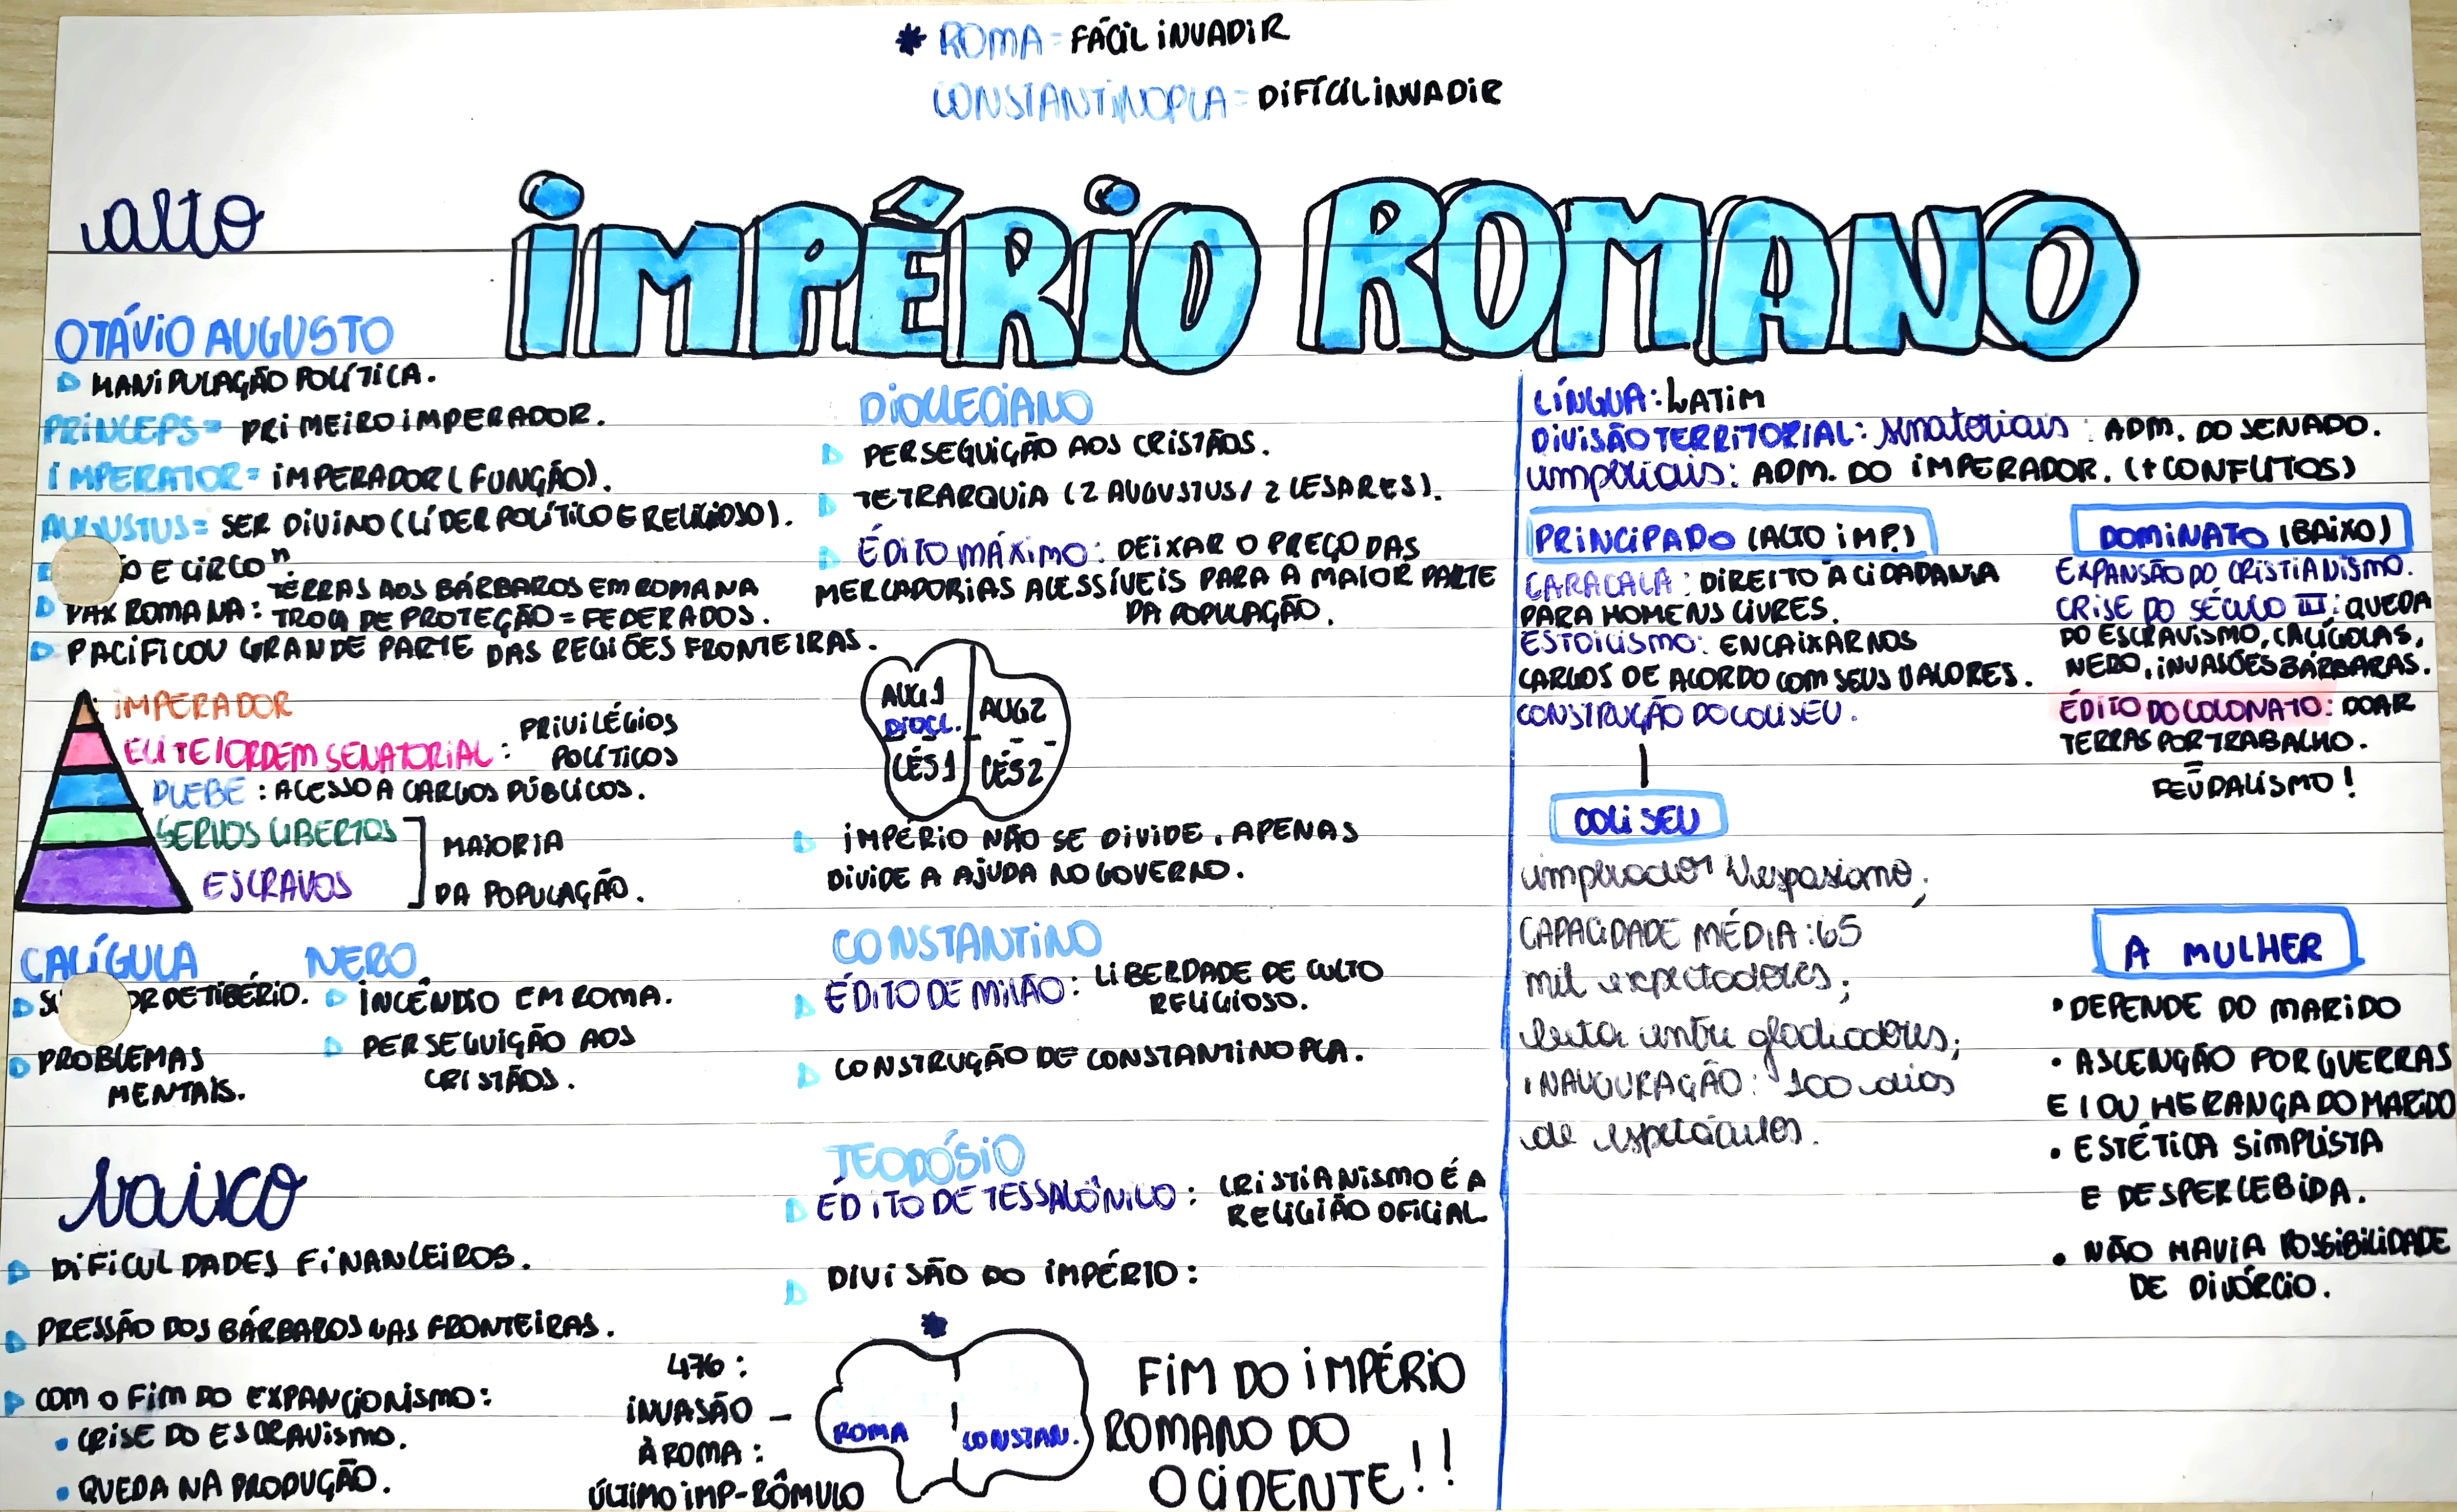 * ROMA = FÁCIL INVADIR
CONSTANTINOPLA = DIFÍCIL INVADIR
IMPÉRIO ROMANO
alto
OTÁVIO AUGUSTO
MANIPULAÇÃO POLÍTICA.
PRINCEPS = PRIMEIRO IMPERADOR.
IMPERATOR = IMPERADOR (FUNÇÃO).
AUGUSTUS = SER DIVINO (LÍDER POLÍTICO E RELIGIOSO).
ÃO E CIRCO"
TERRAS AOS BÁRBAROS EM ROMA NA
PAX ROMANA: TROCA DE PROTEÇÃO = FEDERADOS.
PACIFICOU GRANDE PARTE DAS REGIÕES FRONTEIRAS.
IMPERADOR
ELITE/ORDEM SENATORIAL: PRIVILÉGIOS
POLÍTICOS
PLEBE: ACESSO A CARGOS PÚBLICOS.
SERVOS LIBERTOS
ESCRAVOS
MAIORIA
DA POPULAÇÃO.
CALÍGULA
SU OR DE TIBÉRIO.
PROBLEMAS
MENTAIS.
NERO
INCÊNDIO EM ROMA.
PERSEGUIÇÃO AOS
CRISTÃOS.
baixo
DIFICULDADES FINANCEIROS.
PRESSÃO DOS BÁRBAROS NAS FRONTEIRAS.
COM O FIM DO EXPANCIONISMO:
• CRISE DO ESCRAVISMO.
• QUEDA NA PRODUÇÃO.
DIOCLECIANO
PERSEGUIÇÃO AOS CRISTÃOS.
TETRARQUIA (2 AUGUSTUS/ 2 CESARES).
ÉDITO MÁXIMO: DEIXAR O PREÇO DAS
MERCADORIAS ACESSÍVEIS PARA A MAIOR PARTE
DA POPULAÇÃO.
AUG1
DIOCL.
AUG2
CÉS1
CÉS2
IMPÉRIO NÃO SE DIVIDE, APENAS
DIVIDE A AJUDA NO GOVERNO.
CONSTANTINO
ÉDITO DE MILÃO: LIBERDADE DE CULTO
RELIGIOSO.
CONSTRUÇÃO DE CONSTANTINOPLA.
TEODÓSIO
EDITO DE TESSALÔNICO: CRISTIANISMO É A
RELIGIÃO OFICIAL
DIVISÃO DO IMPÉRIO:
*
476:
INVASÃO –
À ROMA:
ÚLTIMO IMP-RÔMULO
ROMA
CONSTAN.
FIM DO IMPÉRIO
ROMANO DO
OCIDENTE!!
LÍNGUA: LATIM
DIVISÃO TERRITORIAL: senatoriais: ADM. DO SENADO.
imperiais: ADM. DO IMPERADOR. (+ CONFLITOS)
PRINCIPADO (ALTO IMP.)
CARACALA: DIREITO À CIDADANIA
PARA HOMENS LIVRES.
ESTOICISMO: ENCAIXAR NOS
CARGOS DE ACORDO COM SEUS VALORES.
CONSTRUÇÃO DO COLISEU.
COLISEU
imperador Vespasiano;
CAPACIDADE MÉDIA: 65
mil expectadores;
luta entre gladiadores;
INAUGURAÇÃO: 100 dias
de espetáculos.
DOMINATO (BAIXO)
EXPANSÃO DO CRISTIANISMO.
CRISE DO SÉCULO III: QUEDA
DO ESCRAVISMO, CALÍGOLAS,
NERO, INVASÕES BÁRBARAS.
ÉDITO DO COLONATO: DOAR
TERRAS POR TRABALHO.
=
FEUDALISMO!
A MULHER
• DEPENDE DO MARIDO
• ASCENÇÃO POR GUERRAS
E/OU HERANÇA DO MARIDO
• ESTÉTICA SIMPLISTA
E DESPERCEBIDA.
• NÃO HAVIA POSSIBILIDADE
DE DIVÓRCIO.